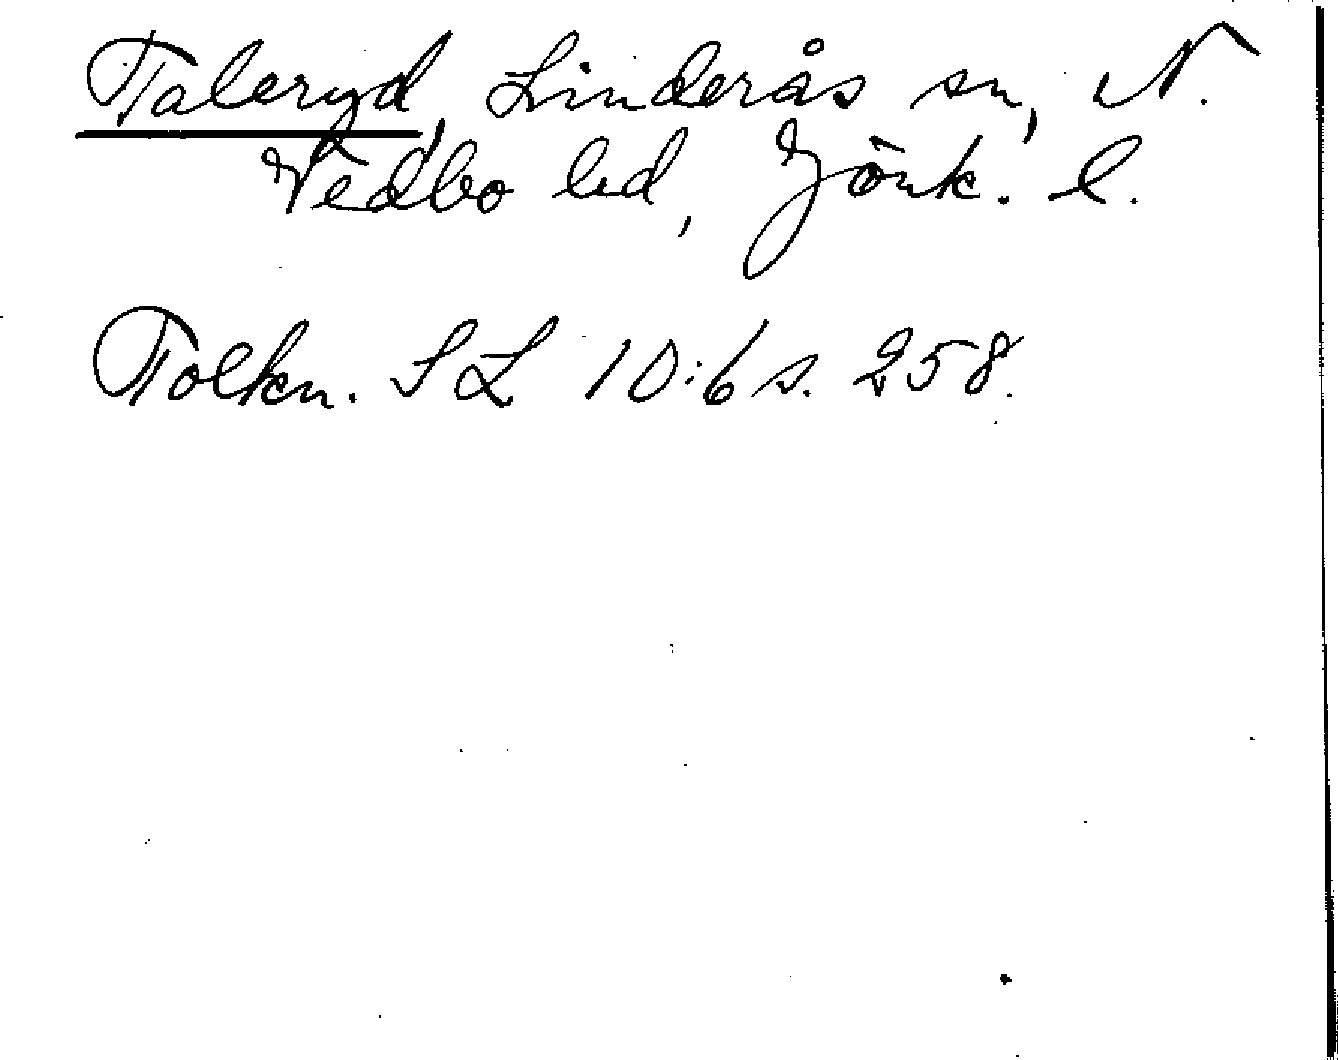 Taleryd, Linderås sn, N.
Vedbo hd, Jönk. l.
Tolkn. SL 10:6 s. 258.